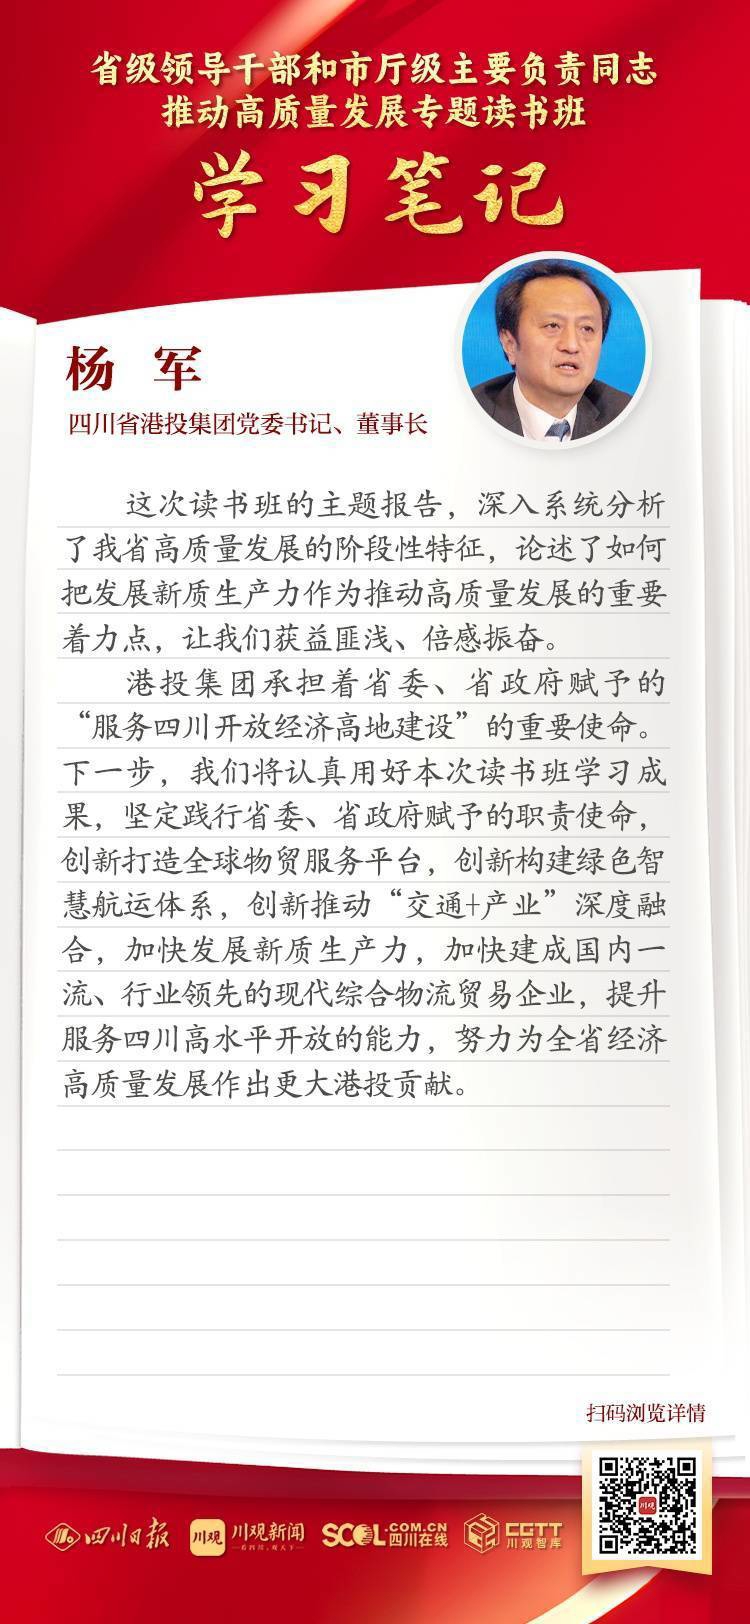 省级领导干部和市厅级主要负责同志
推动高质量发展专题读书班
学习笔记
杨 军
四川省港投集团党委书记、董事长
这次读书班的主题报告，深入系统分析
了我省高质量发展的阶段性特征，论述了如何
把发展新质生产力作为推动高质量发展的重要
着力点，让我们获益匪浅、倍感振奋。
港投集团承担着省委、省政府赋予的
“服务四川开放经济高地建设”的重要使命。
下一步，我们将认真用好本次读书班学习成
果，坚定践行省委、省政府赋予的职责使命，
创新打造全球物贸服务平台，创新构建绿色智
慧航运体系，创新推动“交通+产业”深度融
合，加快发展新质生产力，加快建成国内一
流、行业领先的现代综合物流贸易企业，提升
服务四川高水平开放的能力，努力为全省经济
高质量发展作出更大港投贡献。
扫码浏览详情
川观
四川日报
川观
川观新闻
看四川，观天下
SCOL.COM.CN
四川在线
CGTT
川观智库